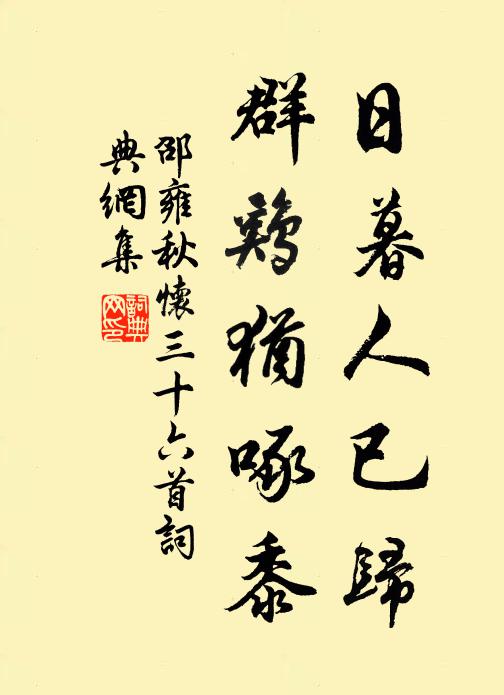 日暮人已歸
群鷄猶啄黍
邵雍秋懷三十六首詞
典網集
詞典网印